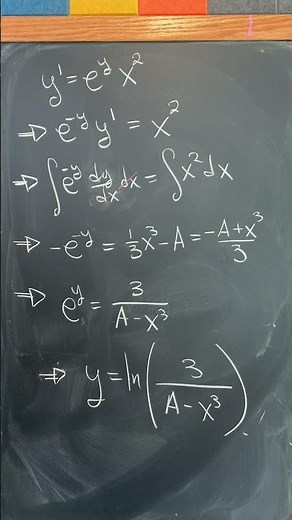 y' = e^y x^2
⇒ e^{-y} y' = x^2
⇒ ∫ e^{-y} dy/dx dx = ∫ x^2 dx
⇒ -e^{-y} = 1/3 x^3 - A = (-A + x^3)/3
⇒ e^y = 3/(A - x^3)
⇒ y = ln(3/(A - x^3))